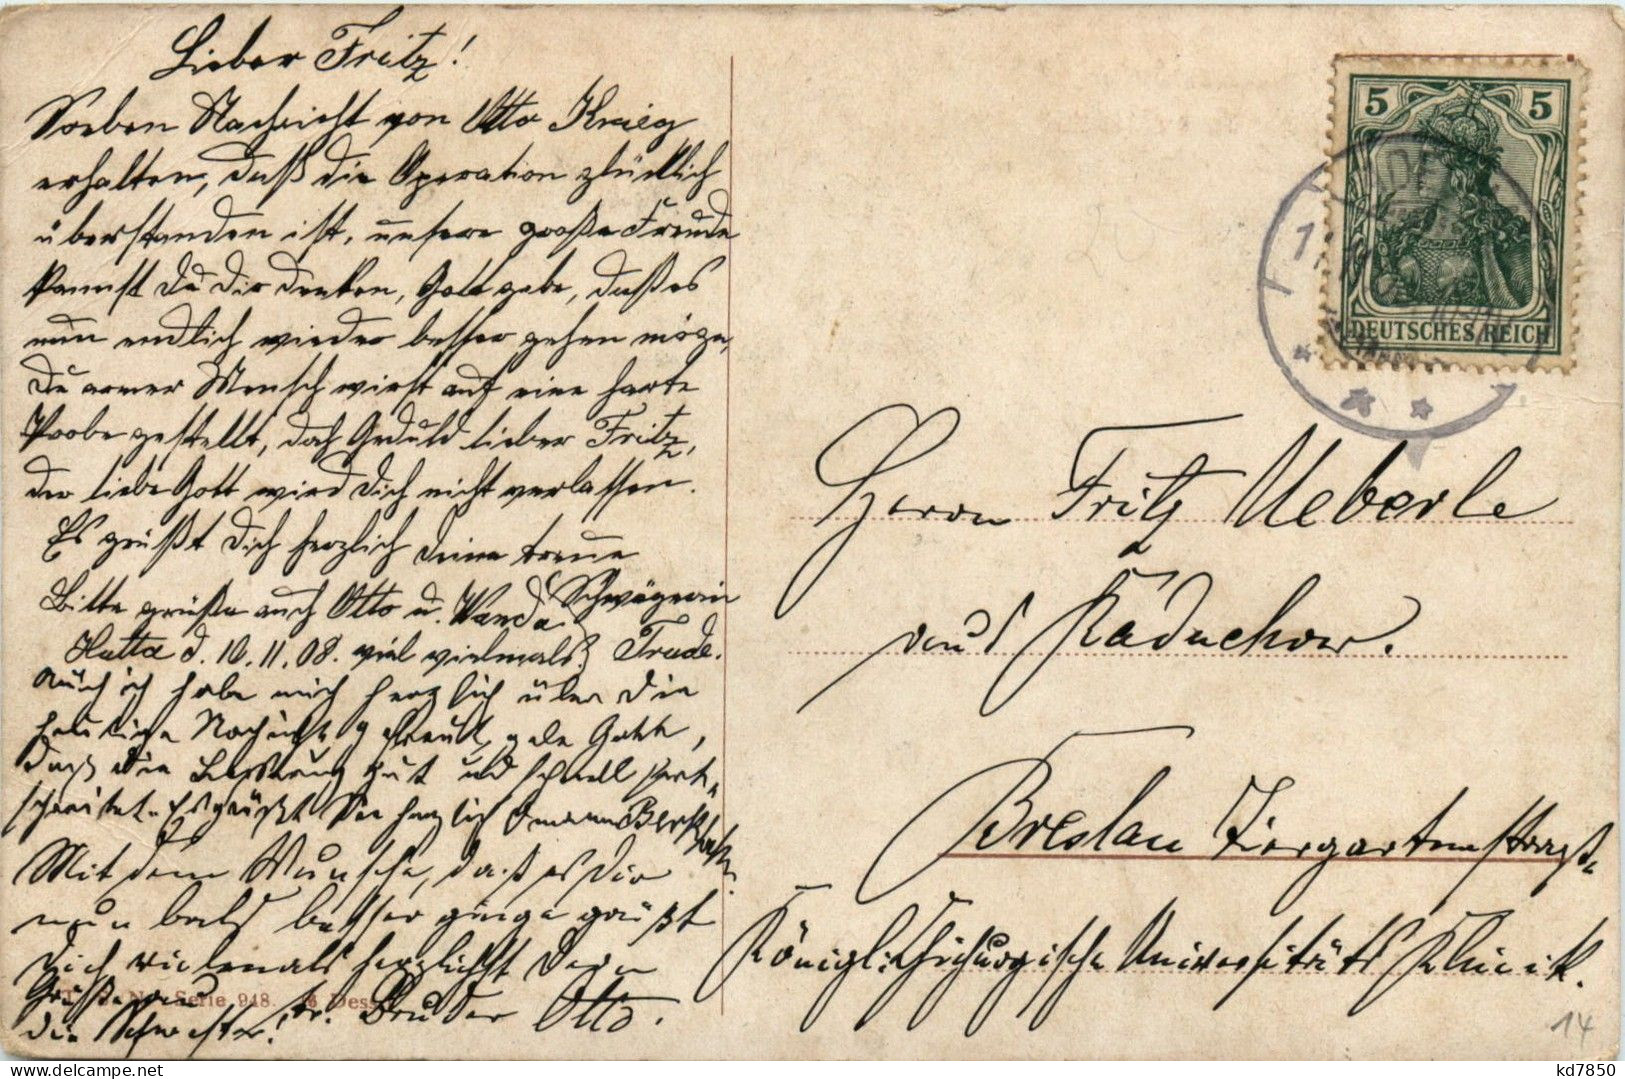 Lieber Fritz!
Soeben Nachricht von Otto Krieg
erhalten, daß die Operation glücklich
überstanden ist, unsere große Freude
kannst Du Dir denken, Gott gebe, daß es
nun endlich wieder besser gehen möge,
Du armer Mensch wirst auf eine harte
Probe gestellt, doch Geduld lieber Fritz,
der liebe Gott wird Dich nicht verlassen.
Es grüßt Dich herzlich Deine treue
Schwägerin
Bitte grüße auch Otto u. Wanda
Hutta d. 10.11.08. viel vielmals! Trude.
Auch ich habe mich herzlich über die
heutige Nachricht gefreut, gebe Gott,
daß die Besserung gut und schnell fort-
schreitet. Es grüßt Sie herzlich
Mit dem Wunsche, daß es Dir
nun bald besser ginge grüßt
Dich vielemals herzlichst Dein
tr. Bruder Otto.
Grüße
die Schwester!
Serie 948. Dess
5 5
DEUTSCHES REICH
Herrn Fritz Ueberle
aus Raduchow.
Breslau Tiergartenstraße
Königl. Chirurgische Universitäts Klinik.
14
kd7850